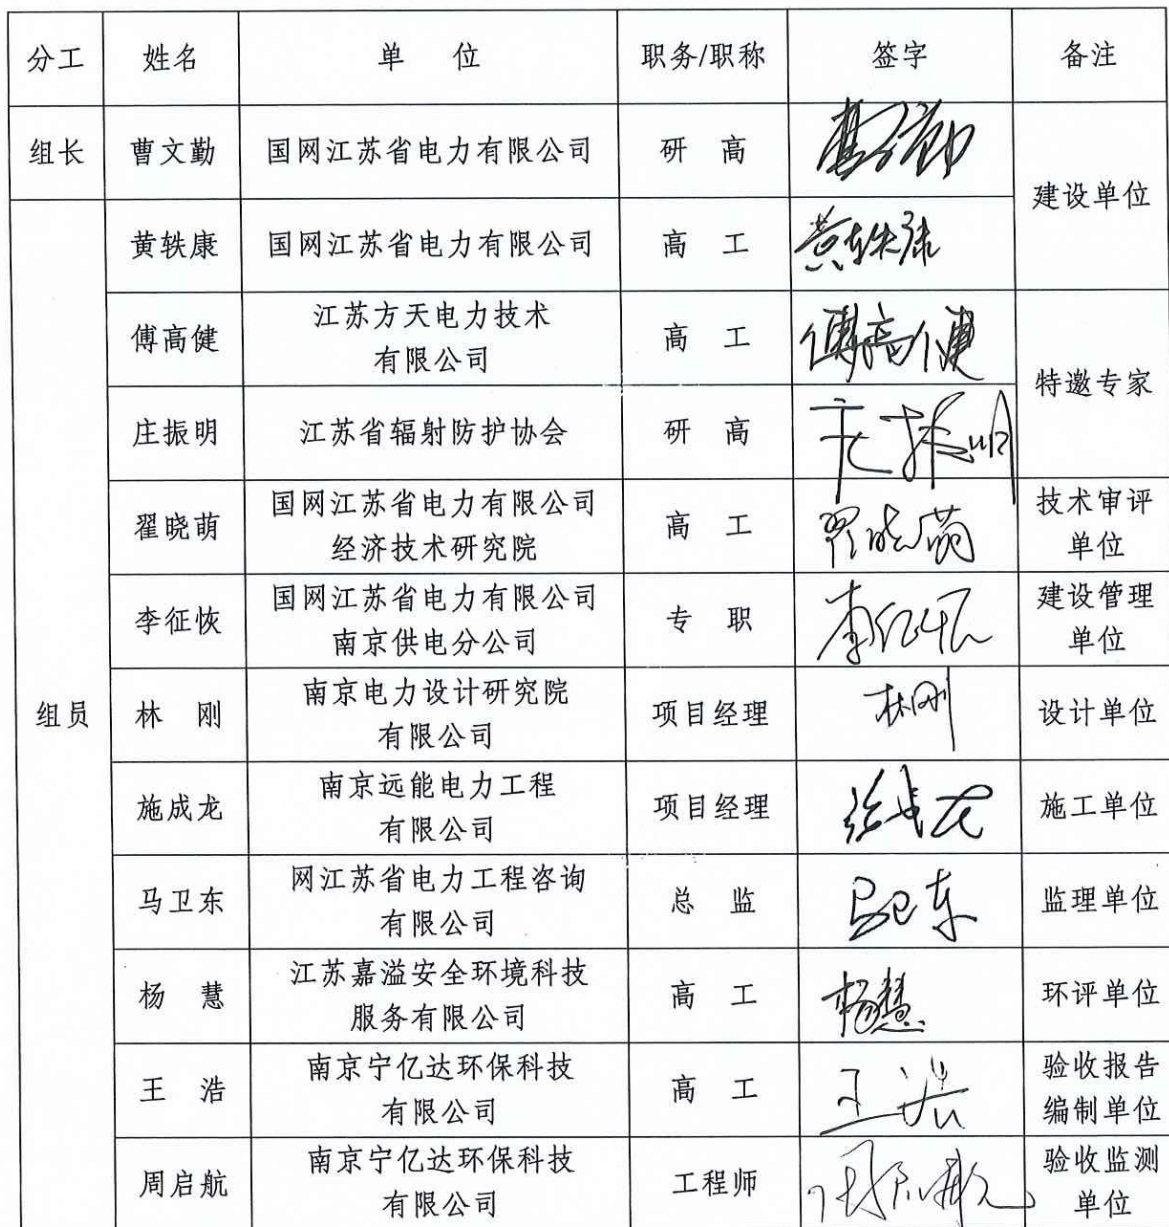 分工 姓名 单 位 职务/职称 签字 备注
组长 曹文勤 国网江苏省电力有限公司 研 高
建设单位
黄轶康 国网江苏省电力有限公司 高 工 黄轶康
傅高健 江苏方天电力技术
有限公司 高 工 傅高健
特邀专家
庄振明 江苏省辐射防护协会 研 高 庄振明
翟晓萌 国网江苏省电力有限公司
经济技术研究院 高 工 翟晓萌 技术审评
单位
李征恢 国网江苏省电力有限公司
南京供电分公司 专 职 李征恢 建设管理
单位
组员 林 刚 南京电力设计研究院
有限公司 项目经理 林刚 设计单位
施成龙 南京远能电力工程
有限公司 项目经理 施成龙 施工单位
马卫东 网江苏省电力工程咨询
有限公司 总 监 马卫东 监理单位
杨 慧 江苏嘉溢安全环境科技
服务有限公司 高 工 杨慧 环评单位
王 浩 南京宁亿达环保科技
有限公司 高 工 王浩 验收报告
编制单位
周启航 南京宁亿达环保科技
有限公司 工程师 验收监测
单位